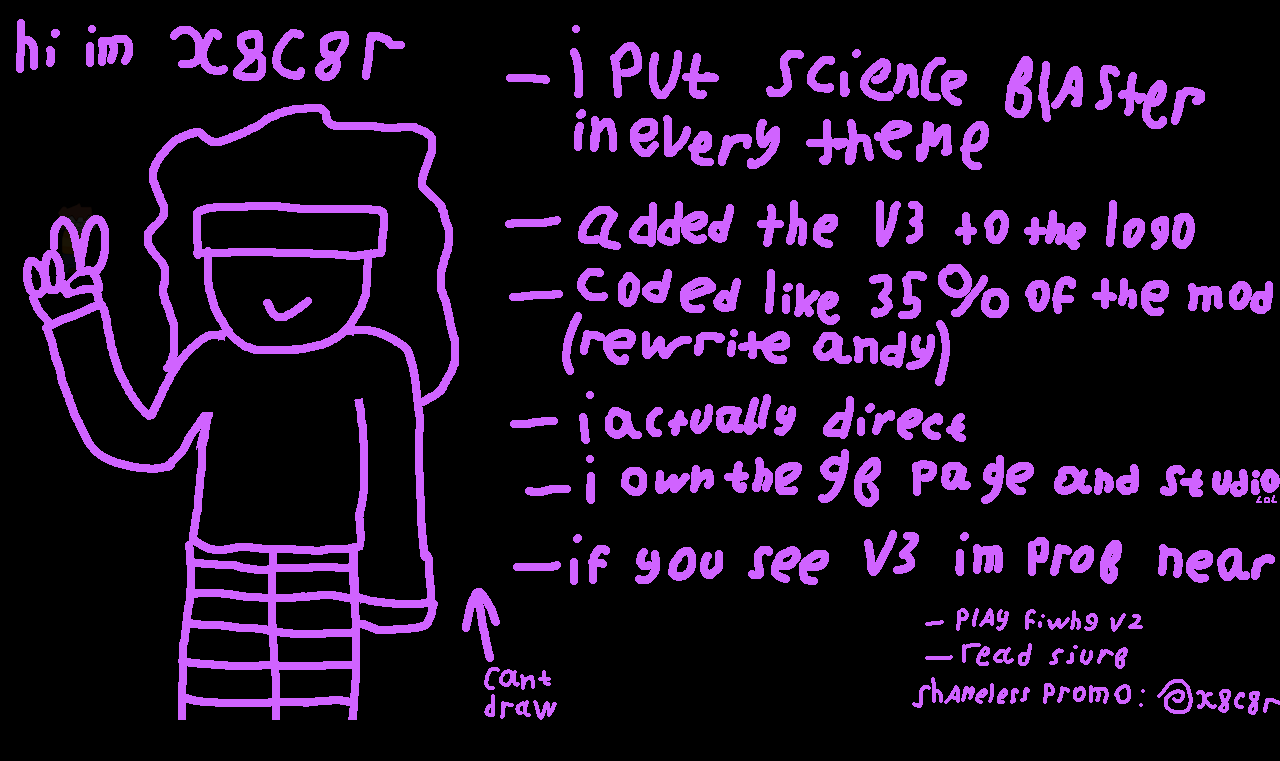 hi im x8c8r
- i put science blaster
in every theme
- added the V3 to the logo
- coded like 35% of the mod
(rewrite andy)
- i actually direct
- i own the gb page and studio
LOL
- if you see V3 im prob near
- play fiwhg v2
- read siurb
shameless promo: @x8c8r
cant
draw